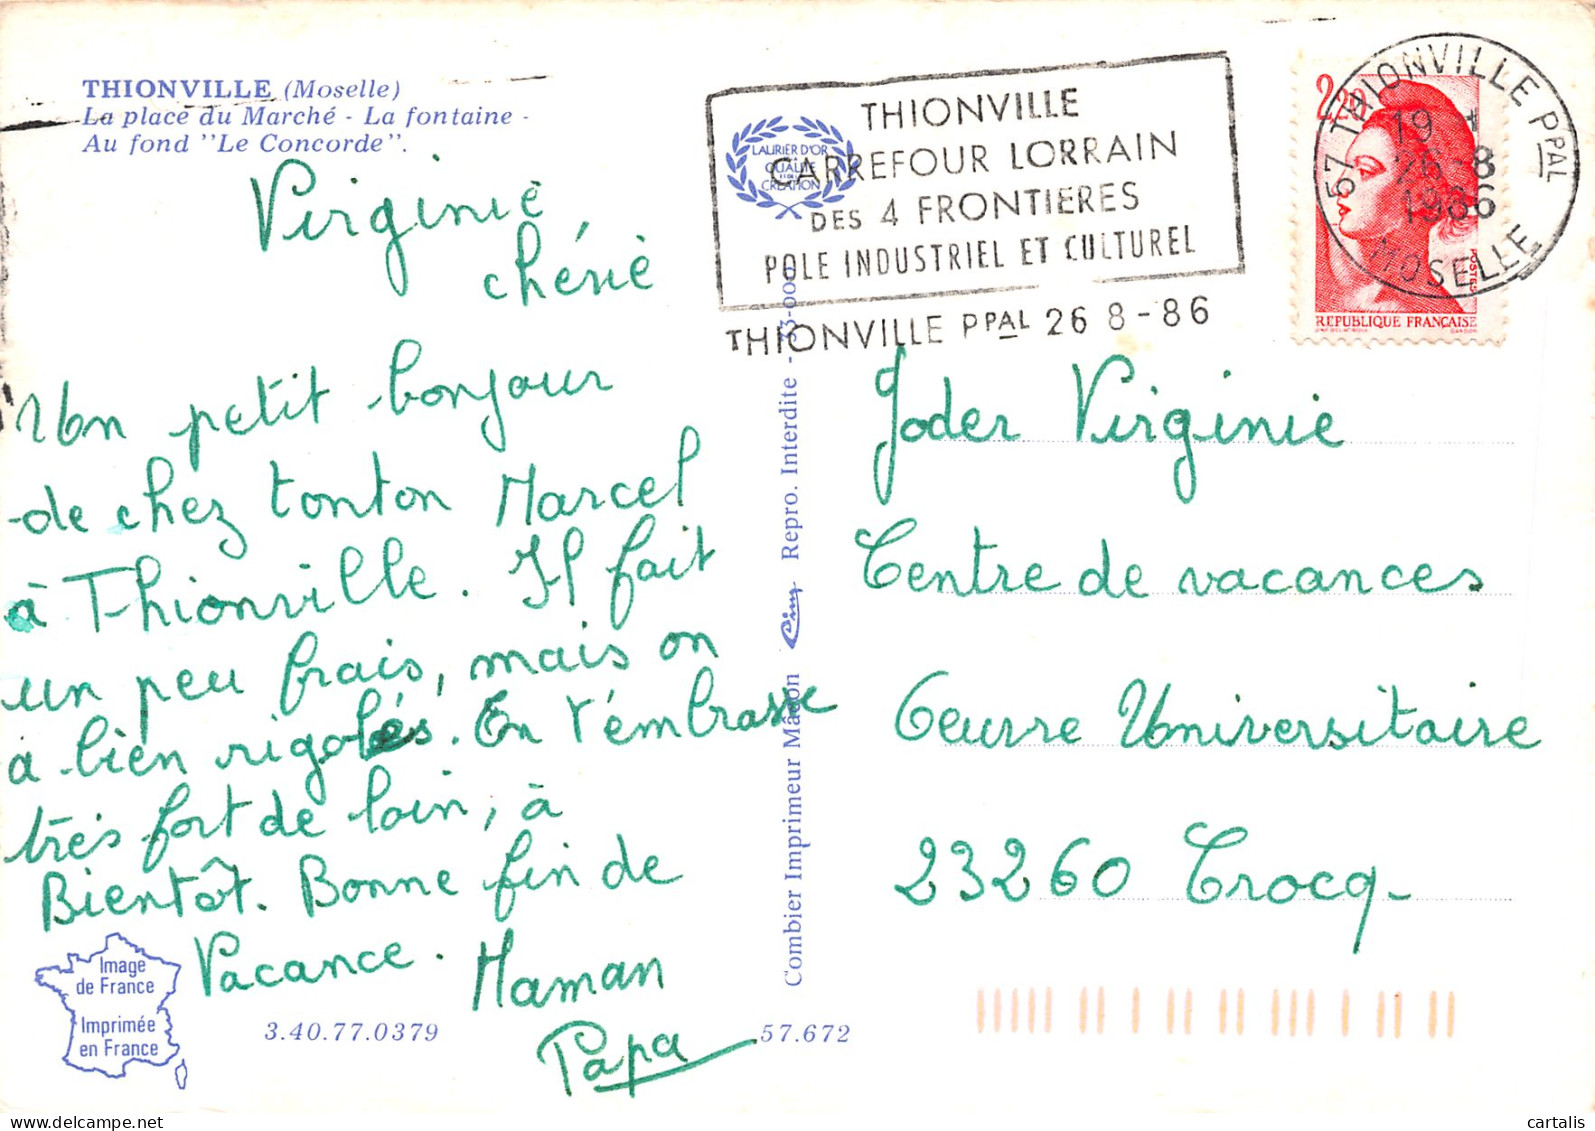 THIONVILLE (Moselle)
La place du Marché - La fontaine -
Au fond "Le Concorde".
Virginie
chérie
Un petit bonjour
de chez tonton Marcel
à Thionville. Il fait
un peu frais, mais on
a bien rigolés. On t'embrasse
très fort de loin, à
Bientôt. Bonne fin de
Vacance. Maman
Papa
Image
de France
Imprimée
en France
3.40.77.0379
57.672
Combier Imprimeur Mâcon Cim Repro. Interdite - 33-000
LAURIER D'OR
QUALITÉ
CRÉATION
THIONVILLE
CARREFOUR LORRAIN
DES 4 FRONTIERES
POLE INDUSTRIEL ET CULTUREL
THIONVILLE PPAL 26 8-86
57 THIONVILLE PPAL
19
26-8
1986
MOSELLE
2,20
POSTES
REPUBLIQUE FRANÇAISE
Joder Virginie
Centre de vacances
Oeuvre Universitaire
23260 Crocq
cartalis